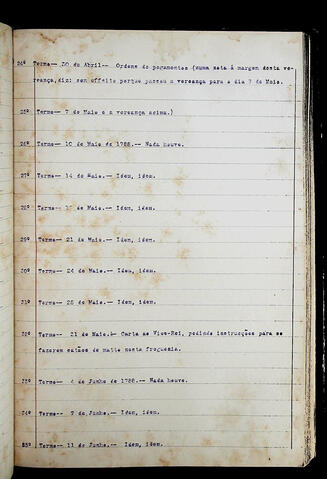 24º Termo-- 30 de Abril-- Ordens de pagamentos (numa nota á margem desta ve-
reança, diz: sem effeito porque passou a vereança para o dia 7 de Maio.
25º Termo-- 7 de Maio e a vereança acima.)
26º Termo-- 10 de Maio de 1788.-- Nada houve.
27º Termo-- 14 de Maio.-- Idem, idem.
28º Termo-- de Maio.-- Idem, idem.
29º Termo-- 21 de Maio.-- Idem, idem.
30º Termo-- 24 de Maio.-- Idem, idem.
31º Termo-- 28 de Maio.-- Idem, idem.
32º Termo-- 21 de Maio.-- Carta ao Vice-Rei, pedindo instrucções para se
fazerem de matto nesta freguezia.
33º Termo-- 4 de Junho de 1788.-- Nada houve.
34º Termo-- 7 de Junho.-- Idem, idem.
35º Termo-- 11 de Junho.-- Idem, idem.